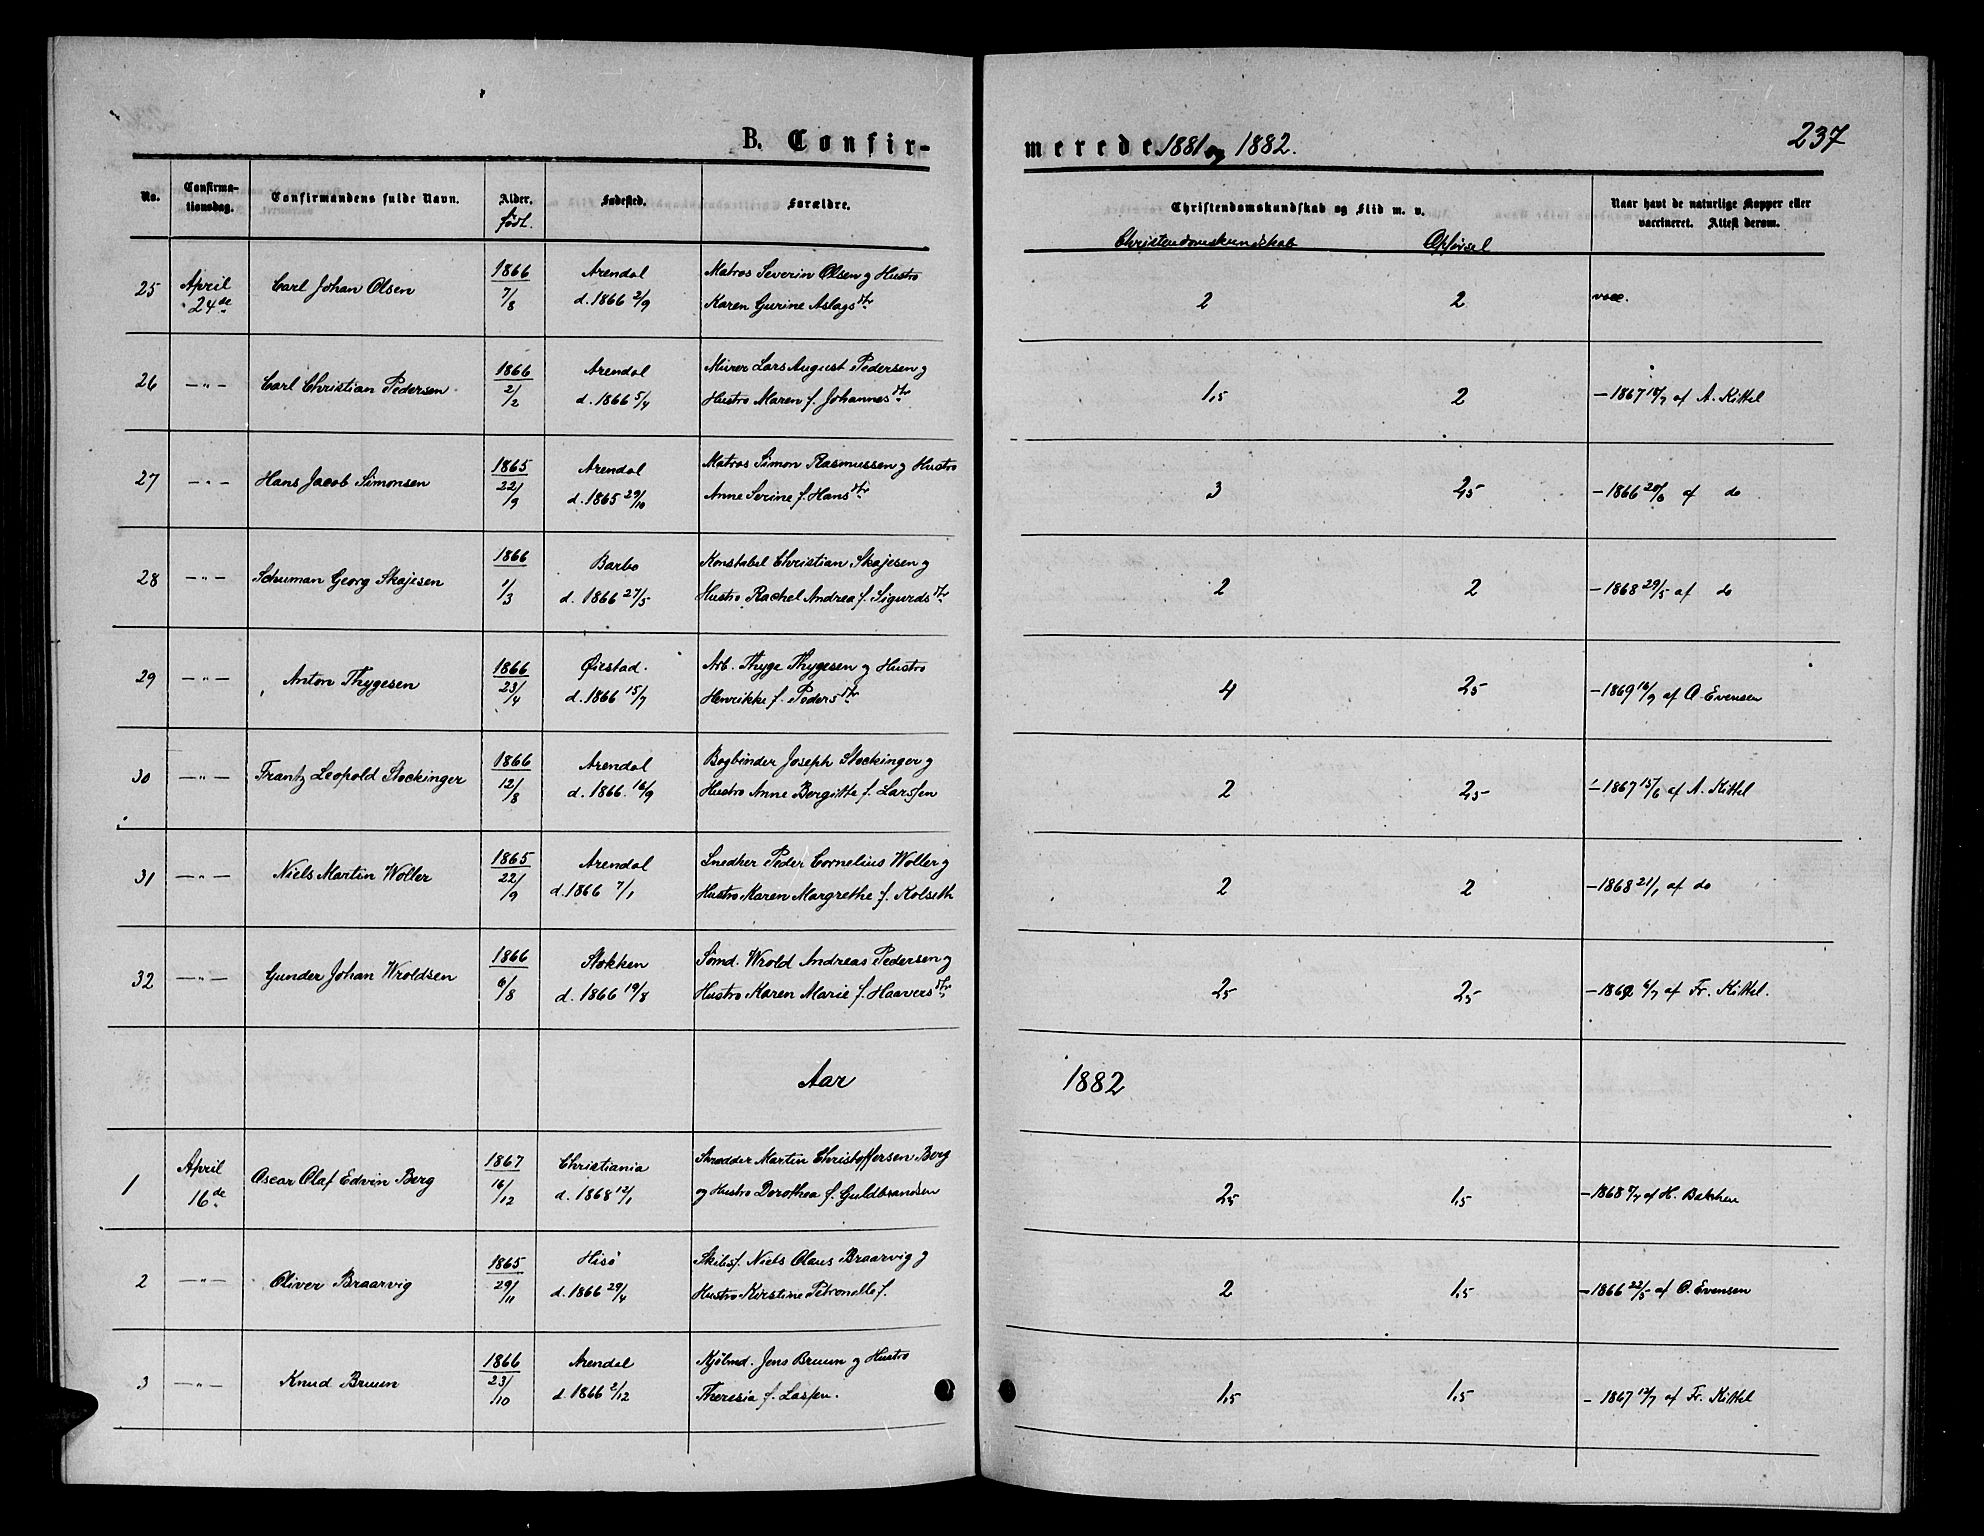 B. Confir-
merede 1881 og 1882.
237
No.
Confirma-
tionsdag.
Confirmandens fulde Navn.
Alder.
født.
Fødested.
Forældre.
Christendomskundskab og Flid m. v.
Christendomskundskab Opførsel
Naar havt de naturlige Kopper eller
vaccineret. Attest derom.
25 April 24de Carl Johan Olsen 1866 7/8 Arendal d. 1866 2/9 Matros Severin Olsen og Hustro Karen Gurine Aslagsdtr 2 2 vacc.
26 —"— Carl Christian Pedersen 1866 2/2 Arendal d. 1866 5/4 Murer Lars August Pedersen og Hustro Maren f. Johannesdtr 1,5 2 — 1867 18/7 af A. Kittel
27 —"— Hans Jacob Simonsen 1865 22/9 Arendal d. 1865 29/10 Matros Simon Rasmussen og Hustro Anne Serine f. Hansdtr 3 2,5 — 1866 20/6 af do
28 —"— Schuman Georg Skajesen 1866 1/3 Barbo d. 1866 27/5 Konstabel Christian Skajesen og Hustro Rachel Andrea f. Sigurdsdtr 2 2 — 1868 29/5 af do
29 —"— Anton Thygesen 1866 23/4 Øiestad. d. 1866 15/7 Arb. Thyge Thygesen og Hustro Henrikke f. Pedersdtr 4 2,5 — 1869 16/7 af O. Evensen
30 —"— Frantz Leopold Stockinger 1866 12/8 Arendal d. 1866. 16/9 Bogbinder Joseph Stockinger og Hustro Anne Bergitte f. Larssen 2 2,5 — 1867 15/6 af A. Kittel
31 —"— Niels Martin Woller 1865 22/9 Arendal d. 1866 7/1 Snedker Peder Cornelius Woller og Hustro Karen Margrethe f. Kolseth 2 2 — 1868 21/1 af do
32 —"— Gunder Johan Wroldsen 1866 6/8 Stokken d. 1866 19/8 Sømd. Wrold Andreas Pedersen og Hustro Karen Marie f. Haaversdtr 2,5 2,5 — 1869 6/7 af Fr. Kittel.
Aar 1882
1 April 16de Oscar Olaf Edvin Berg 1867 16/12 Christiania d. 1868 12/1 Skrædder Martin Christoffersen Berg og Hustro Dorothea f. Guldbrandsen 2,5 1,5 — 1868 7/7 af H. Bakken
2 —"— Oliver Braarvig 1865 29/11 Hisø d. 1866 29/4 Skibsf. Niels Olaus Braarvig og Hustro Kirstine Petronelle f. 2 1,5 — 1866 22/5 af O. Evensen
3 —"— Knud Bruun 1866 23/10 Arendal d. 1866 2/12 Kjølmd. Jens Bruun og Hustro Theresia f. Lassen. 1,5 1,5 — 1867 12/7 af Fr. Kittel